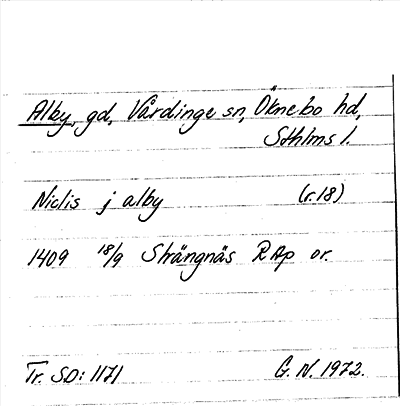 Alby, gd, Vårdinge sn, Öknebo hd,
Sthlms l.
Niclis j alby (r.18)
1409 18/9 Strängnäs RAp or.
Tr. SD: 1171 G. N. 1972.